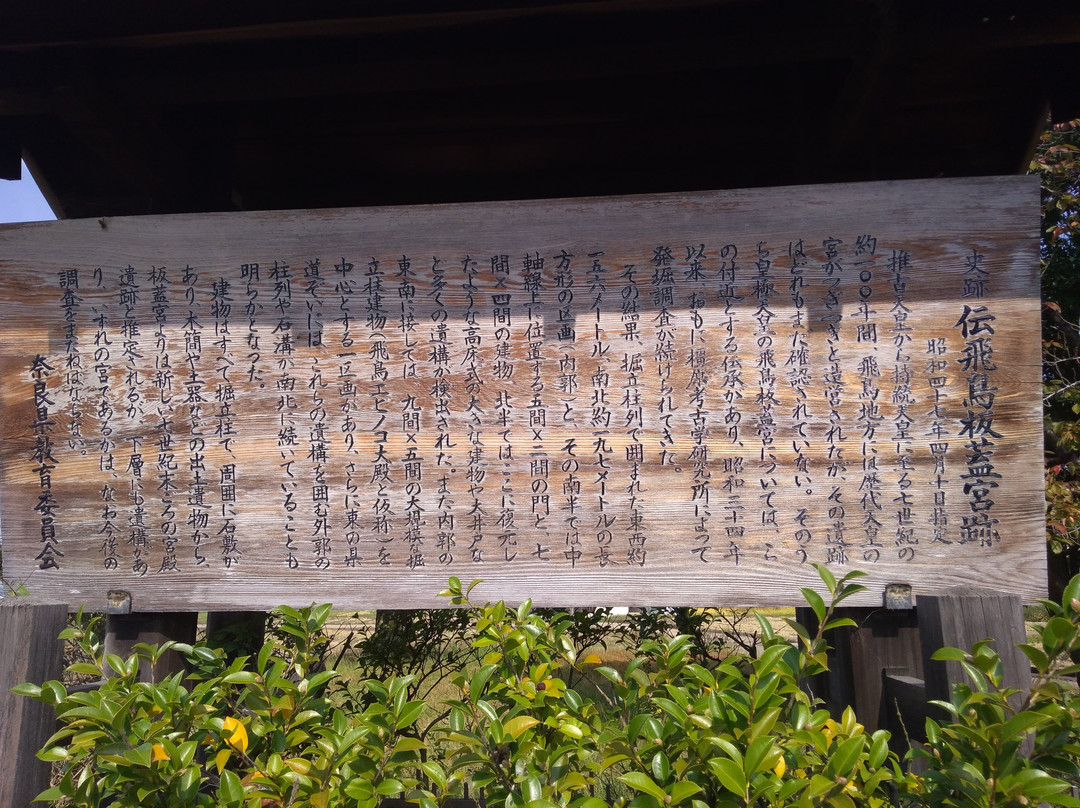 史跡 伝飛鳥板蓋宮跡
昭和四十七年四月十日指定
推古天皇から持統天皇に至る七世紀の
約一〇〇年間、飛鳥地方には歴代天皇の
宮がつぎつぎと造営されたが、その遺跡
はどれもまだ確認されていない。そのう
ち皇極天皇の飛鳥板蓋宮については、こ
の付近とする伝承があり、昭和三十四年
以来、おもに橿原考古学研究所によって
発掘調査が続けられてきた。
その結果、掘立柱列で囲まれた東西約
一五六メートル、南北約一九七メートルの長
方形の区画（内郭）と、その南半では中
軸線上に位置する五間×二間の門と、七
間×四間の建物、北半ではここに復元し
たような高床式の大きな建物や大井戸な
ど多くの遺構が検出された。また内郭の
東南に接しては、九間×五間の大規模な掘
立柱建物（飛鳥エビノコ大殿と仮称）を
中心とする一区画があり、さらに東の県
道ぞいには、これらの遺構を囲む外郭の
柱列や石溝が南北に続いていることも
明らかとなった。
建物はすべて掘立柱で、周囲に石敷が
あり、木簡や土器などの出土遺物から、
板蓋宮よりは新しい七世紀末ごろの宮殿
遺跡と推定されるが、下層にも遺構があ
り、いずれの宮であるかは、なお今後の
調査をまたねばならない。
奈良県教育委員会